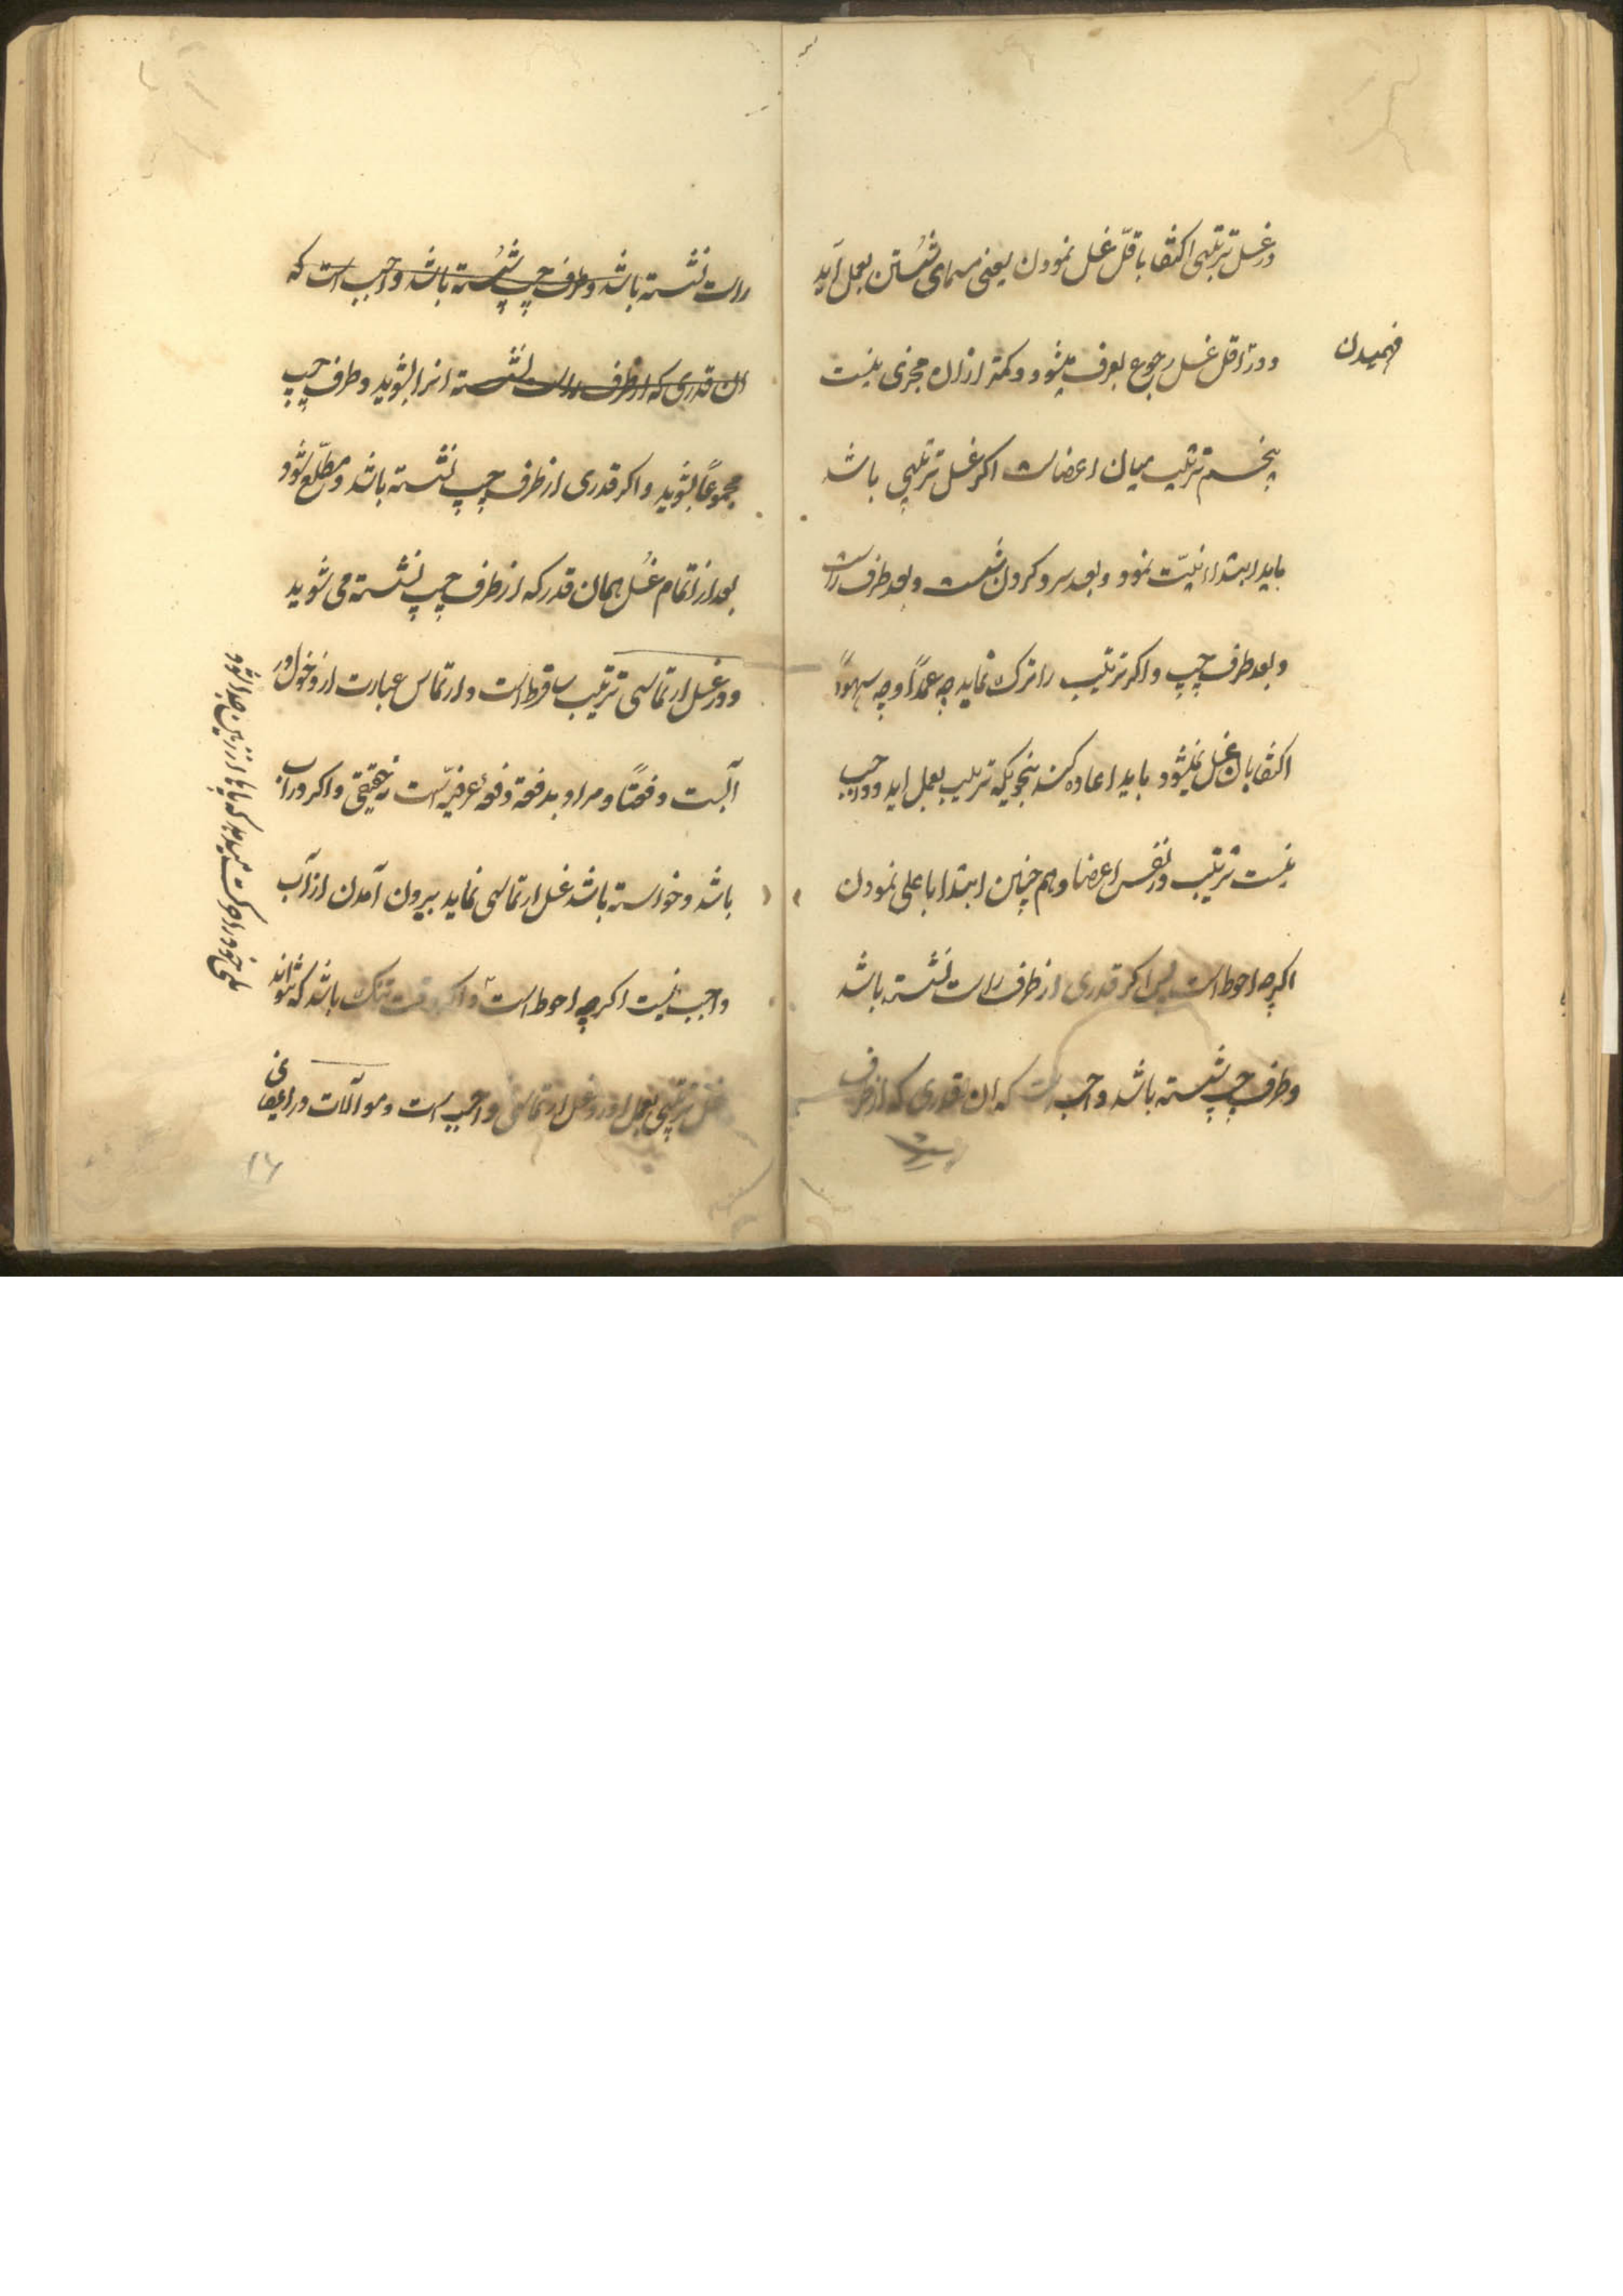 در غسل ترتیبی اکتفا باقلّ غسل نمودن یعنی مسمای شستن بعمل آید
فهمیدن
و در اقل غسل رجوع بعرف میشود و کمتر ازان مجزی نیست
پنجم ترتیب میان اعضاست اکر غسل ترتیبی باشد
باید ابتدا نیّت نمود و بعد سر و کردن شست و بعد طرف راست
و بعد طرف چپ و اکر ترتیب را ترک نماید چه عمداً و چه سهواً
اکتفا بان غسل نمیشود باید اعاده کند بنحویکه ترتیب بعمل اید و واجب
نیست ترتیب در نفس اعضا و هم چنین ابتدا باعلی نمودن
اکرچه احوط است پس اکر قدری از طرف راست نشسته باشد
و طرف چپ شسته باشد واجب است که ان قدری که از طرف
راست نشسته باشد و طرف چپ شسته باشد واجب است که
ان قدری که از طرف راست نشسته انرا بشوید و طرف چپ
مجموعاً بشوید و اکر قدری از طرف چپ نشسته باشد و مطّلع شود
بعد از اتمام غسل همان قدر که از طرف چپ نشسته می شوید
و در غسل ارتماسی ترتیب ساقط است و ارتماس عبارت از دخول در
آبست دفعتاً و مراد بدفعة دفعهٔ عرفیّه است نه حقیقی و اکر در اب
باشد و خواسته باشد غسل ارتماسی نماید بیرون آمدن از آب
واجب نیست اکرچه احوط است و اکر وقت تنک باشد که نتواند
غسل ترتیبی بعمل اورد غسل ارتماسی واجب است و موالات در
خود را حرکت میدهد که پاها از زمین جدا شود
۱۶